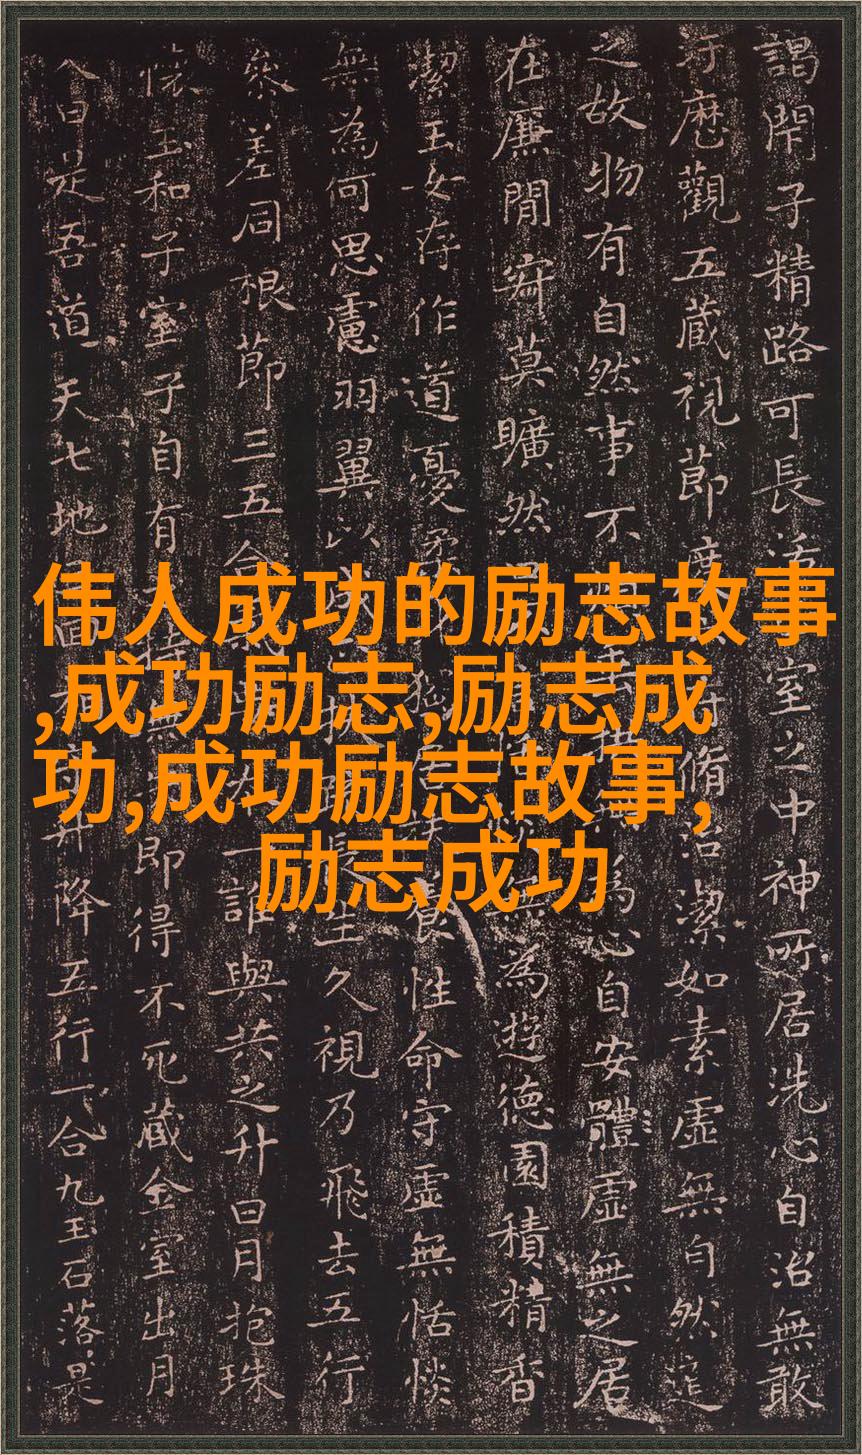 伟人成功的励志故事
,成功励志,励志成
功,成功励志故事,
励志成功
閉子精路可長活室之中神所居洗心自治無敢
汙歷觀五藏視節度府脩治潔如素虛無自然道
之故物有自然事不為心自安體虛無之居
在廉間寂莫曠然為遊德園積精香
潔玉女存作道憂柔性命守虛無恬惔
無為何思慮羽翼以成生久視乃飛去五行
參差同根節三五合一誰與共之升日月抱珠
懷玉和子室子自有持即得不死藏金室出月
入日是吾道天七地升降五行一合九玉石落是